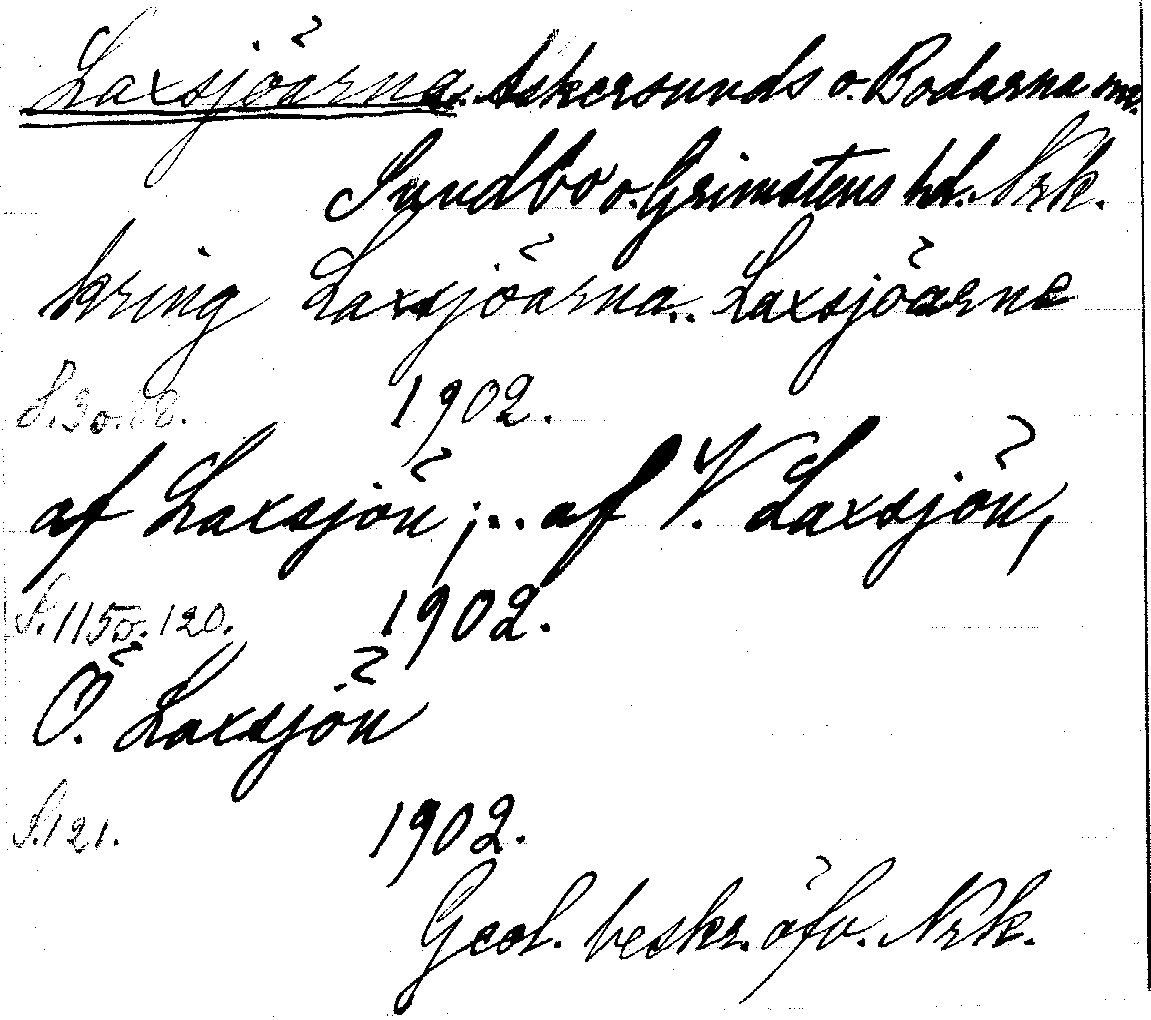 Laxsjöarna. Askersunds o. Bodarna snr.
Sundbo o. Grimstens hd. Nrk.
kring Laxsjöarna.. Laxsjöarne
S. 30. 1902.
af Laxsjön;.. af V. Laxsjön,
S. 115 o. 120. 1902.
Ö. Laxsjön
S. 121. 1902.
Geol. beskr. öfv. Nrk.